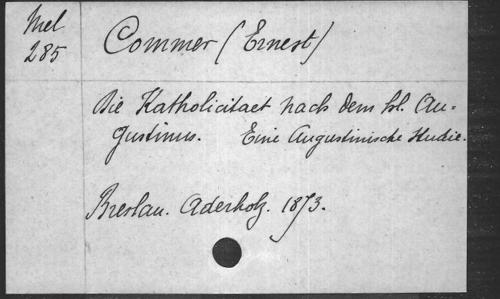 Mel
285
Commer (Ernest)
Die Katholicitaet nach dem hl. Au-
gustinus. Eine Augustinische Studie.
Breslau. Aderholz. 1873.